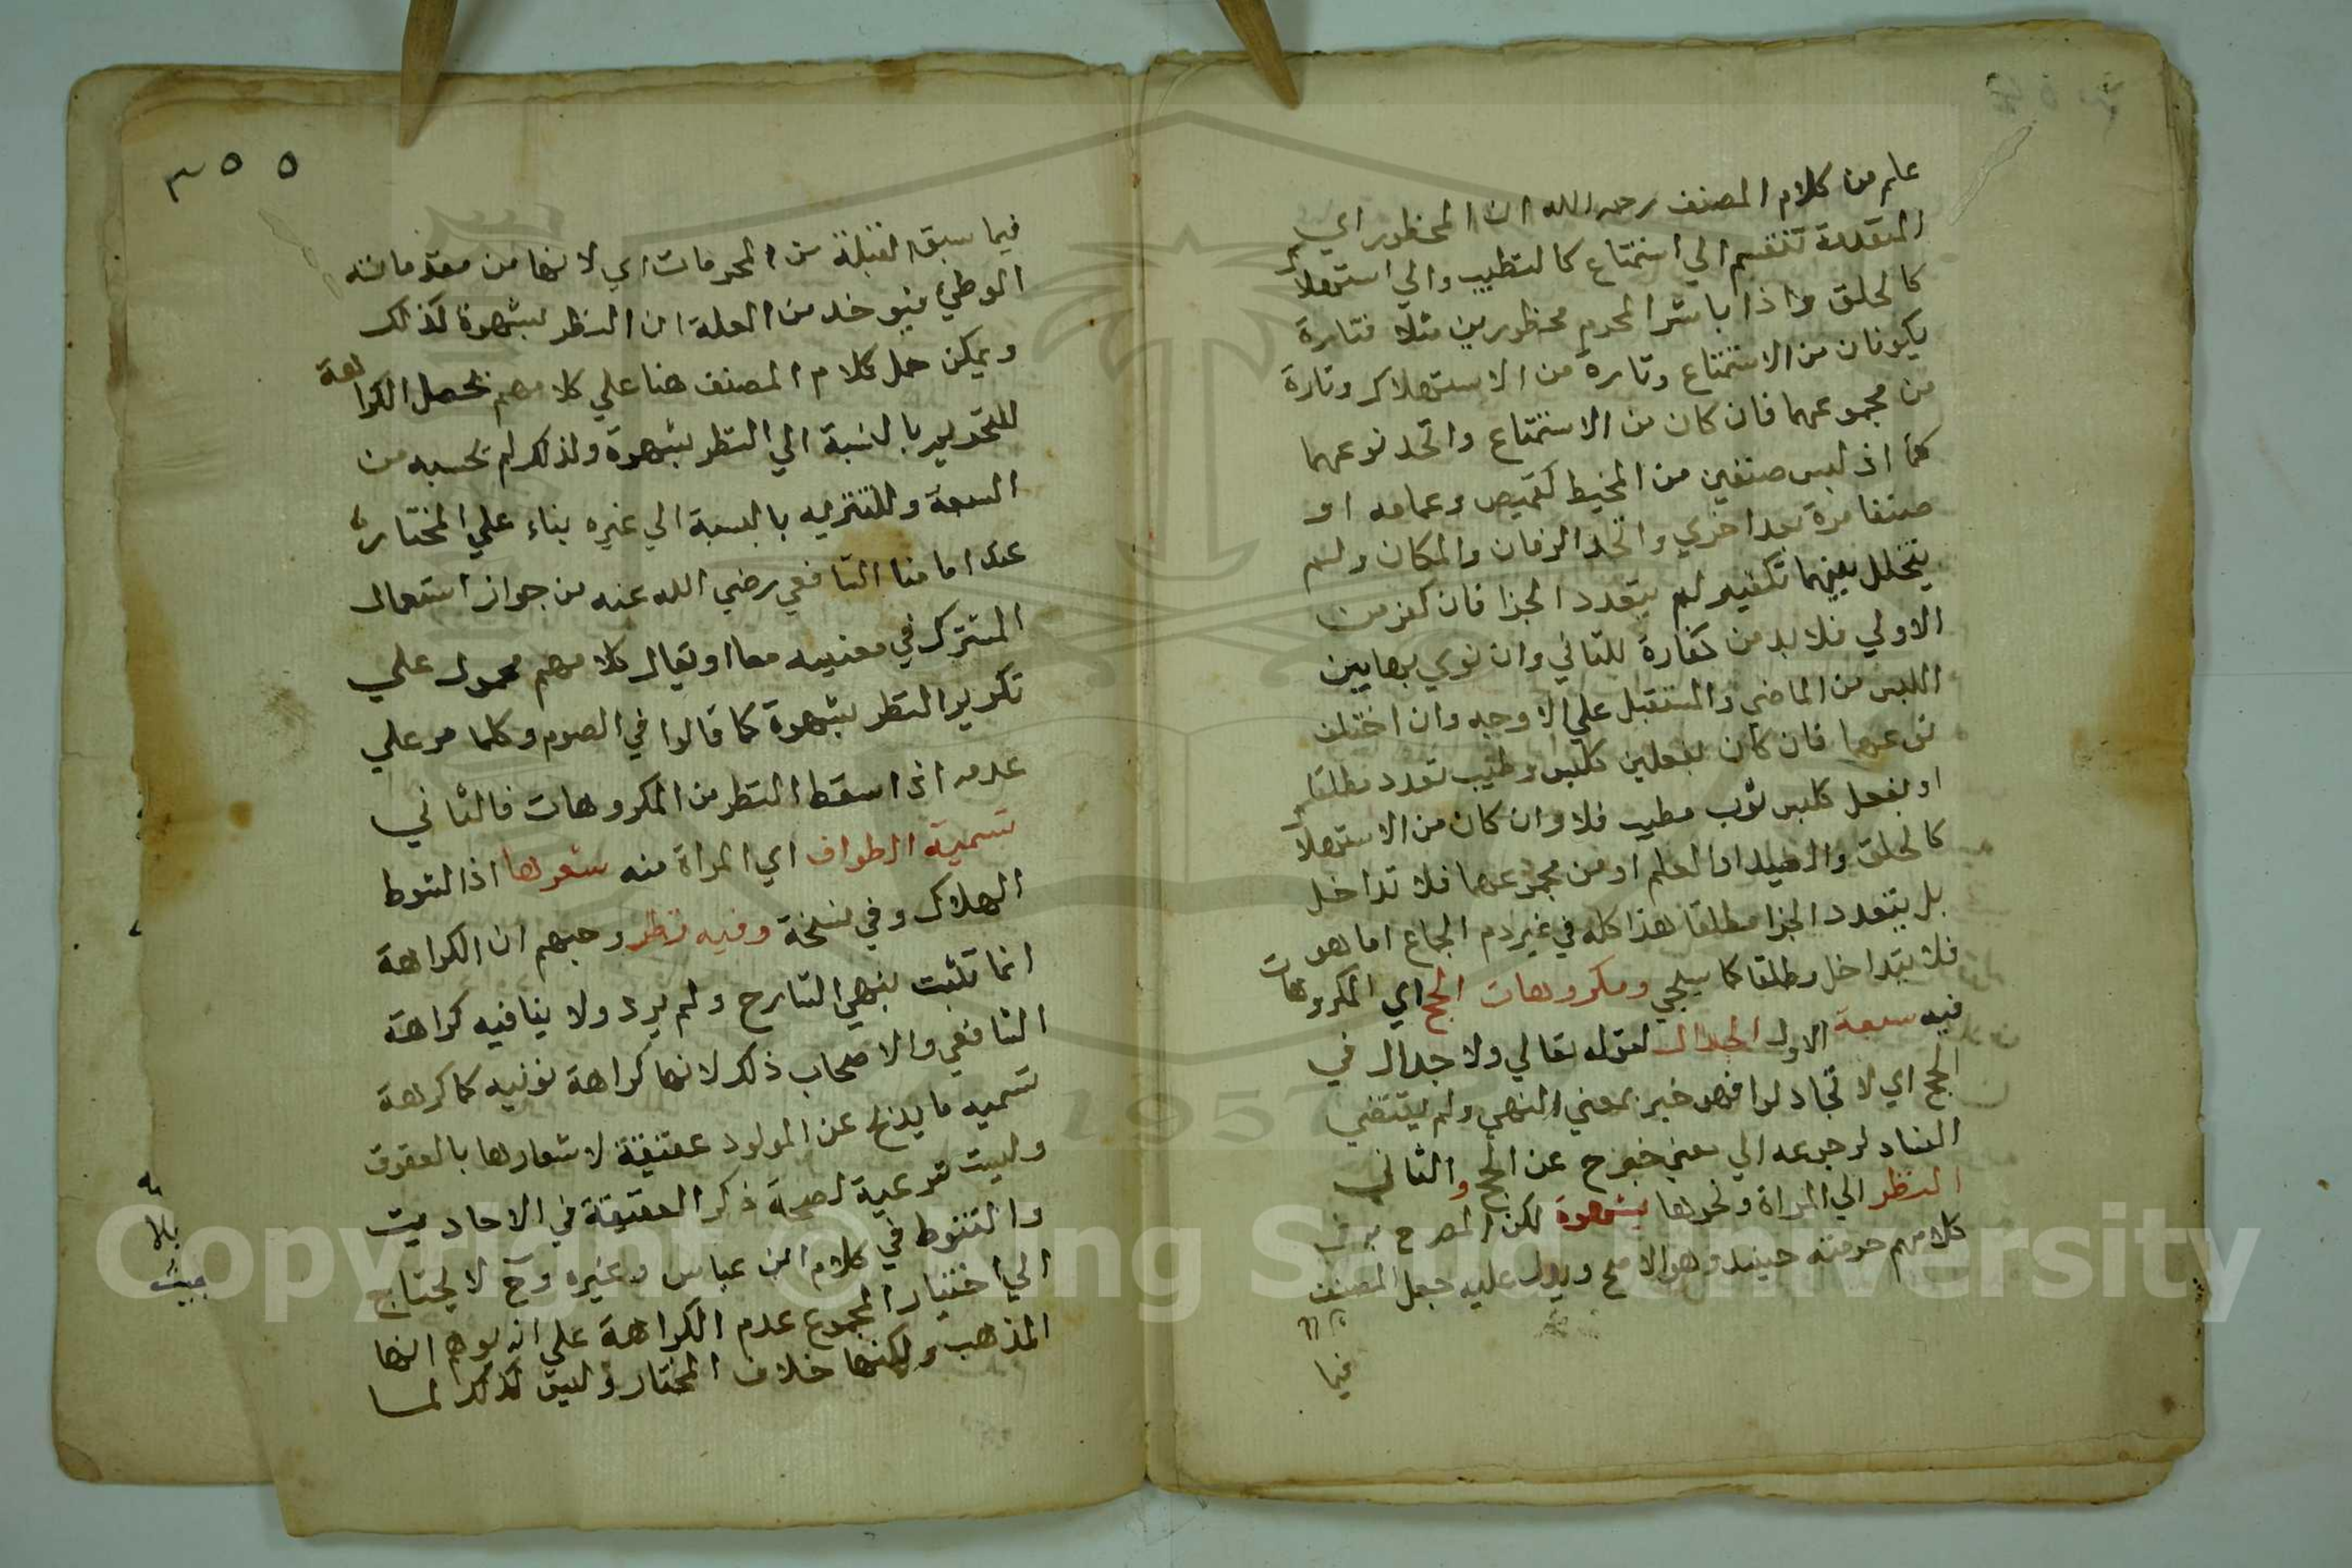 علم من كلام المصنف رحمه الله ان المحظور اي
المتقدمة تنقسم الي استمتاع كالتطيب والي استهلاك
كالحلق واذا باشر المحرم محظورين مثلا فتارة
يكونان من الاستمتاع وتارة من الاستهلاك وتارة
من مجموعهما فان كان من الاستمتاع واتحد نوعهما
كما اذ لبس صنفين من المخيط كقميص وعمامه او
صنفا مرة بعد اخري واتحد الزمان والمكان ولم
يتخلل بينهما تكفير لم يتعدد الجزا فان كفر من
الاولي فلا بد من كفارة للثاني وان نوي بها بين
اللبس من الماضي والمستقبل علي الاوجه وان اختلف
نوعهما فان كان بفعلين كلبس وطيب تعدد مطلقا
او بفعل كلبس ثوب مطيب فلا وان كان من الاستهلاك
كالحلق والصيد او القلم او من مجموعهما فلا تداخل
بل يتعدد الجزا مطلقا هذا كله في غير دم الجماع اما هو
فلا يتداخل مطلقا كما سيجي ومكروهات الحج اي المكروهات
فيه سبعة الاول الجدال لقوله تعالي ولا جدال في
الحج اي لا تجادلوا فهو خبر بمعني النهي ولم يقتضي
الفساد لرجوعه الي معني خارج عن الحج والثاني
النظر الي المراة ونحوها بشهوة لكن المصرح به في
كلامهم حرمته حينيد وهو الاصح ويدل عليه جعل المصنف
فيما
٣٥٥
فيما سبق القبلة من المحرمات اي لانها من مقدماته
الوطي فيوخد من العلة ان النظر بشهوة كذلك
ويمكن حمل كلام المصنف هنا علي كلامهم بحصل الكراهة
للتحريم بالنسبة الي النظر بشهوة ولذلك لم يحسبه من
السبعة وللتنزيه بالنسبة الي غيره بناء علي المختار
عند امامنا الشافعي رضي الله عنه من جواز استعمال
المشترك في معنييه معا او يقال كلامهم محمول علي
تكرير النظر بشهوة كما قالوا في الصوم وكلامه علي
عدمه اذا سقط النظر من المكروهات فالثاني
تسمية الطواف اي المراة منه شعرها اذ الشوط
الهلاك وفي نسخة وفيه نظر وجههم ان الكراهة
انما تثبت بنهي الشارع ولم يرد ولا ينافيه كراهة
الشافعي والاصحاب ذلك لانها كراهة نونيه كما كرهة
تسميه ما يذبح عن المولود عقيقة لاشعارها بالعقوق
وليست شرعية لصحة ذكر العقيقة في الاحاديث
والشوط في كلام ابن عباس وغيره وح لا يحتاج
الي اختيار المجموع عدم الكراهة علي انه يوهم انها
المذهب ولكنها خلاف المختار وليس كذلك لما